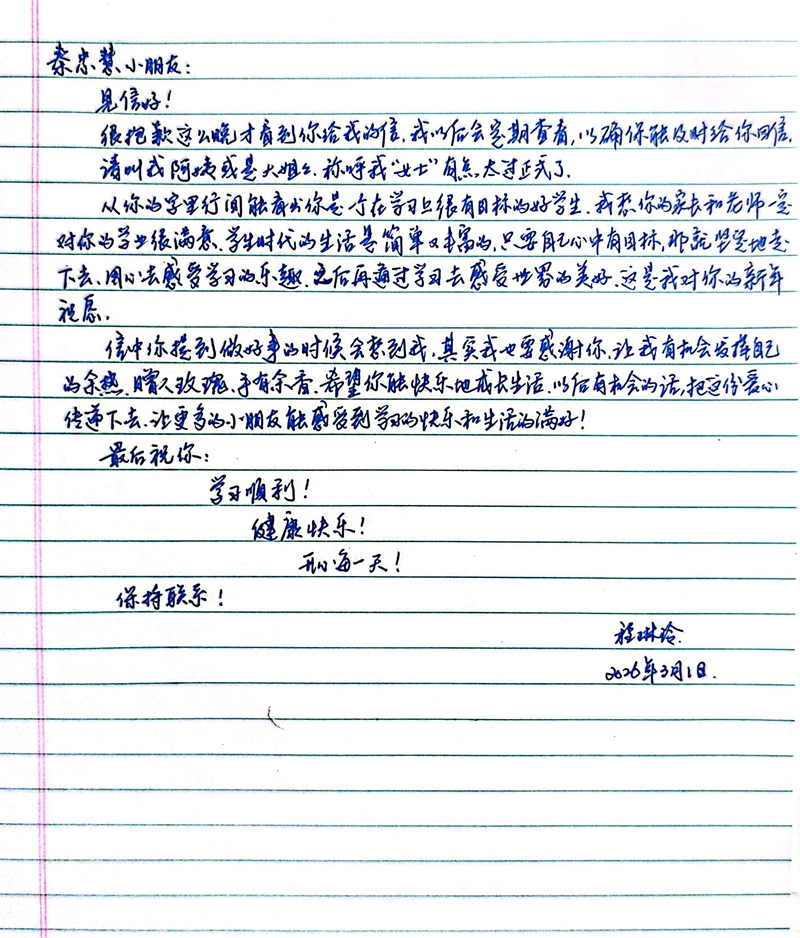 秦忠慧小朋友:
见信好!
很抱歉这么晚才看到你给我的信,我以后会定期查看,以确保能及时给你回信。
请叫我阿姨或是大姐姐,称呼我“女士”有点太过正式了。
从你的字里行间能看出你是个在学习上很有目标的好学生,我想你的家长和老师一定
对你的学业很满意。学生时代的生活是简单又丰富的,只要自己心中有目标,那就坚定地走
下去,用心去感受学习的乐趣,之后再通过学习去感受世界的美好,这是我对你的新年
祝愿。
信中你提到做好事的时候会想到我,其实我也要感谢你,让我有机会发挥自己
的余热,赠人玫瑰,手有余香。希望你能快乐地成长生活,以后有机会的话,把这份爱心
传递下去,让更多的小朋友能感受到学习的快乐和生活的满好!
最后祝你:
学习顺利!
健康快乐!
开心每一天!
保持联系!
程琳玲
2026年3月1日.